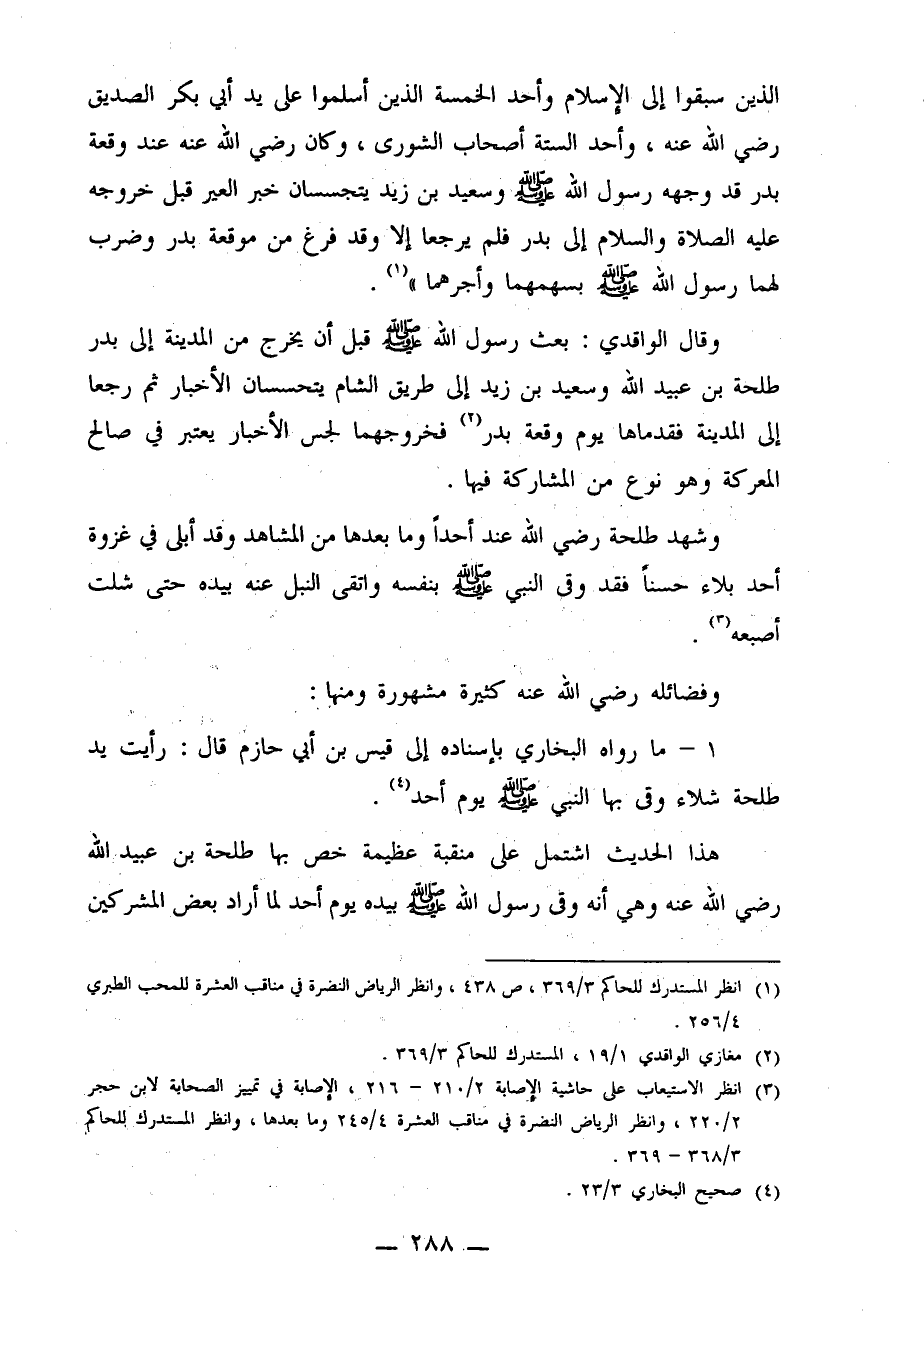 الذين سبقوا إلى الإسلام وأحد الخمسة الذين أسلموا على يد أبي بكر الصديق
رضي الله عنه ، وأحد الستة أصحاب الشورى ، وكان رضي الله عنه عند وقعة
بدر قد وجهه رسول الله ﷺ وسعيد بن زيد يتجسسان خبر العير قبل خروجه
عليه الصلاة والسلام إلى بدر فلم يرجعا إلا وقد فرغ من موقعة بدر وضرب
لهما رسول الله ﷺ بسهمهما وأجرهما »(١) .
وقال الواقدي : بعث رسول الله ﷺ قبل أن يخرج من المدينة إلى بدر
طلحة بن عبيد الله وسعيد بن زيد إلى طريق الشام يتحسسان الأخبار ثم رجعا
إلى المدينة فقدماها يوم وقعة بدر(٢) فخروجهما لجس الأخبار يعتبر في صالح
المعركة وهو نوع من المشاركة فيها .
وشهد طلحة رضي الله عند أحداً وما بعدها من المشاهد وقد أبلى في غزوة
أحد بلاء حسناً فقد وقى النبي ﷺ بنفسه واتقى النبل عنه بيده حتى شلت
أصبعه(٣) .
وفضائله رضي الله عنه كثيرة مشهورة ومنها :
١ – ما رواه البخاري بإسناده إلى قيس بن أبي حازم قال : رأيت يد
طلحة شلاء وقى بها النبي ﷺ يوم أحد(٤) .
هذا الحديث اشتمل على منقبة عظيمة خص بها طلحة بن عبيد الله
رضي الله عنه وهي أنه وقى رسول الله ﷺ بيده يوم أحد لما أراد بعض المشركين
(١) انظر المستدرك للحاكم ٣٦٩/٣ ، ص ٤٣٨ ، وانظر الرياض النضرة في مناقب العشرة للمحب الطبري
٢٥٦/٤ .
(٢) مغازي الواقدي ١٩/١ ، المستدرك للحاكم ٣٦٩/٣ .
(٣) انظر الاستيعاب على حاشية الإصابة ٢١٠/٢ – ٢١٦ ، الإصابة في تمييز الصحابة لابن حجر
٢٢٠/٢ ، وانظر الرياض النضرة في مناقب العشرة ٢٤٥/٤ وما بعدها ، وانظر المستدرك للحاكم
٣٦٨/٣ – ٣٦٩ .
(٤) صحيح البخاري ٢٣/٣ .
— ٢٨٨ —